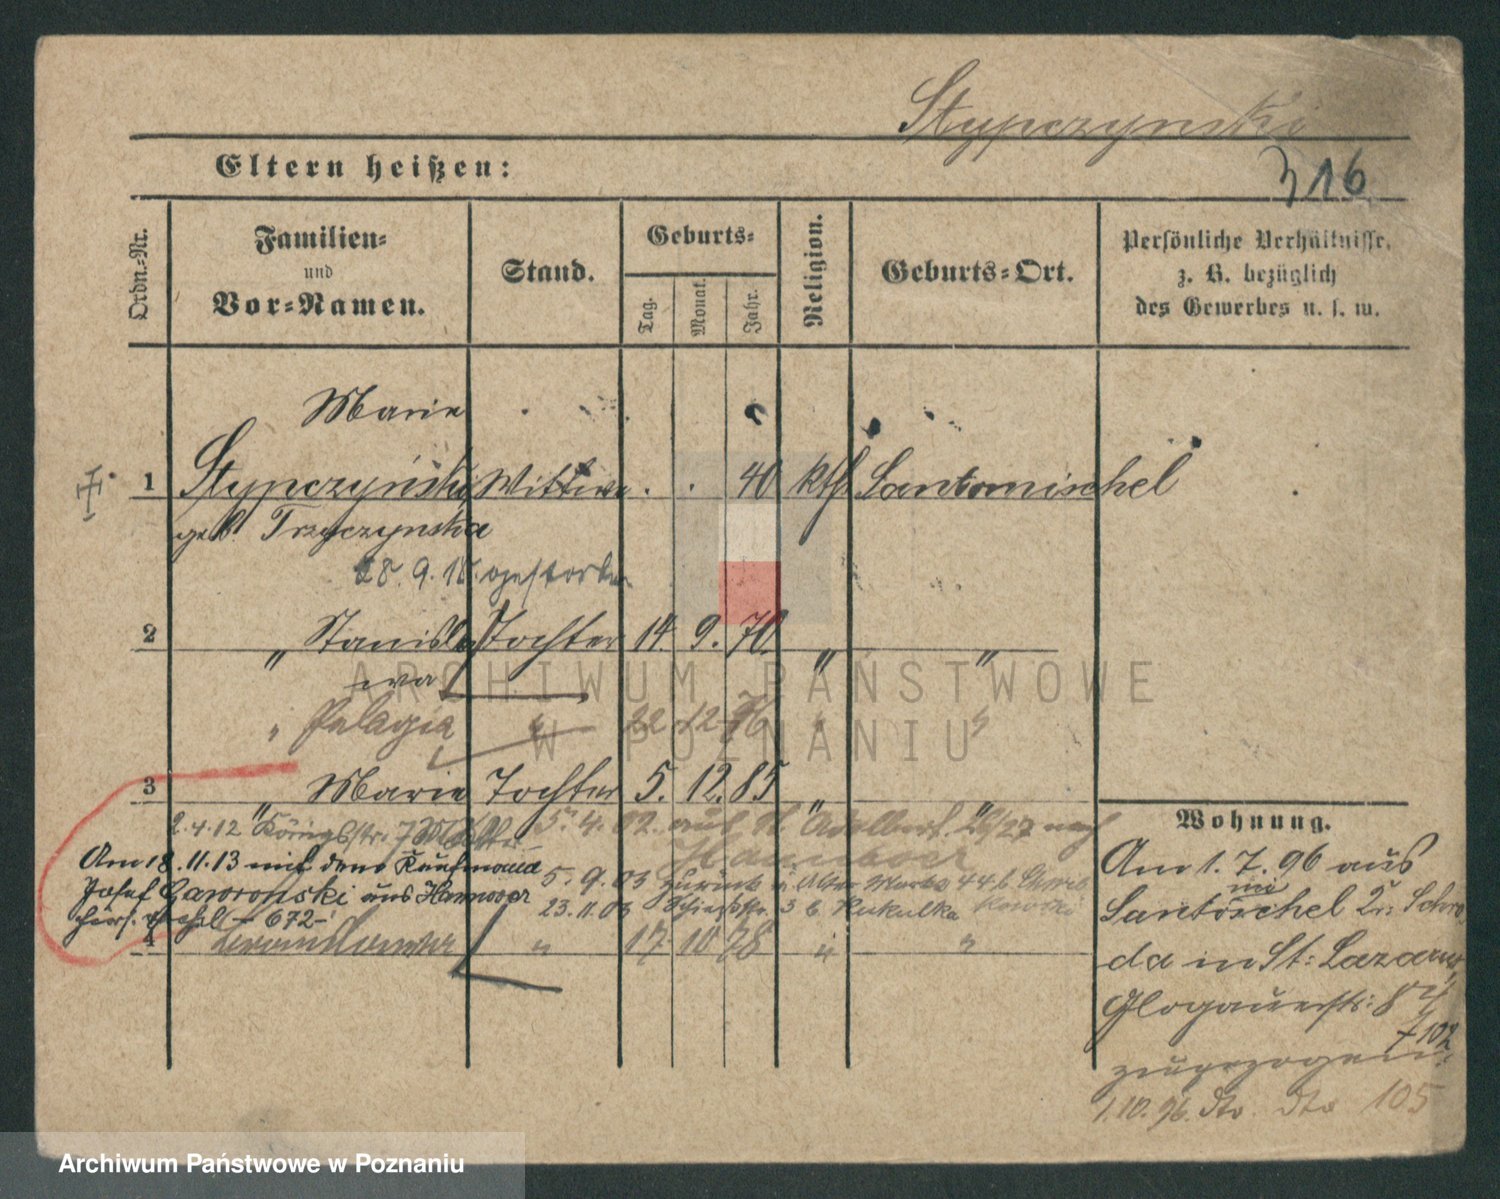 Stypczynski
Eltern heißen:
316
Ordn.-Nr.
Familien-
und
Vor-Namen.
Stand.
Geburts-
Tag.
Monat.
Jahr.
Religion.
Geburts-Ort.
Persönliche Verhältnisse,
z. B. bezüglich
des Gewerbes u. s. w.
Marie
1 Stypczyński Wittwe . . 40 kth Santomischel
geb. Trzyczynska
28. 9. gestorben
2 " Stanisla Tochter 14. 9. 70. " "
wa
" Pelagia " 22 12 76 " "
3 " Marie Tochter 5. 12. 85 " "
2.4.12 Königstr.
5. 4. 02. auf St. Adalbert. 26/27 nach
Hannover
Am 18.11.13 mit dem Kaufmann
Josef Gaworonski aus Hannover
5. 9. 03 zurück Alter Markt 44 b.
23.11.03 Schießstr. 3 b. Kukulka
hier. ehel - 672 -
4 " 17 10 78 " "
Wohnung.
Am 1. 7. 96 aus
Santomischel Kr. Schro
da in St. Lazarus,
Glogauerstr: 87/
102
zugezogen.
1.10.96. dto. dto 105
ARCHIWUM PAŃSTWOWE
W POZNANIU
Archiwum Państwowe w Poznaniu